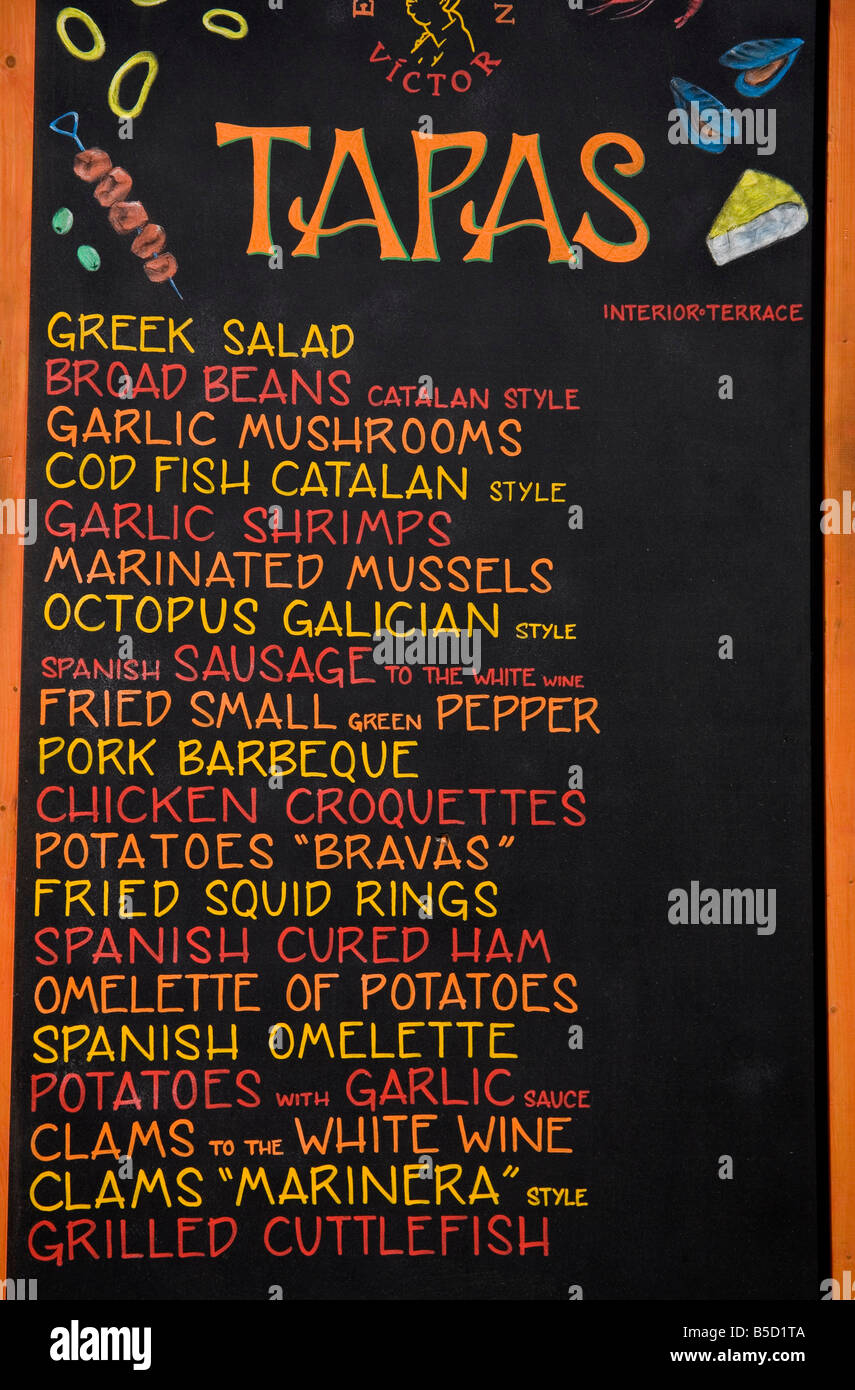 VÍCTOR
TAPAS
INTERIOR·TERRACE
GREEK SALAD
BROAD BEANS CATALAN STYLE
GARLIC MUSHROOMS
COD FISH CATALAN STYLE
GARLIC SHRIMPS
MARINATED MUSSELS
OCTOPUS GALICIAN STYLE
SPANISH SAUSAGE TO THE WHITE WINE
FRIED SMALL GREEN PEPPER
PORK BARBEQUE
CHICKEN CROQUETTES
POTATOES "BRAVAS"
FRIED SQUID RINGS
SPANISH CURED HAM
OMELETTE OF POTATOES
SPANISH OMELETTE
POTATOES WITH GARLIC SAUCE
CLAMS TO THE WHITE WINE
CLAMS "MARINERA" STYLE
GRILLED CUTTLEFISH
alamy
Image ID: B5D1TA
www.alamy.com